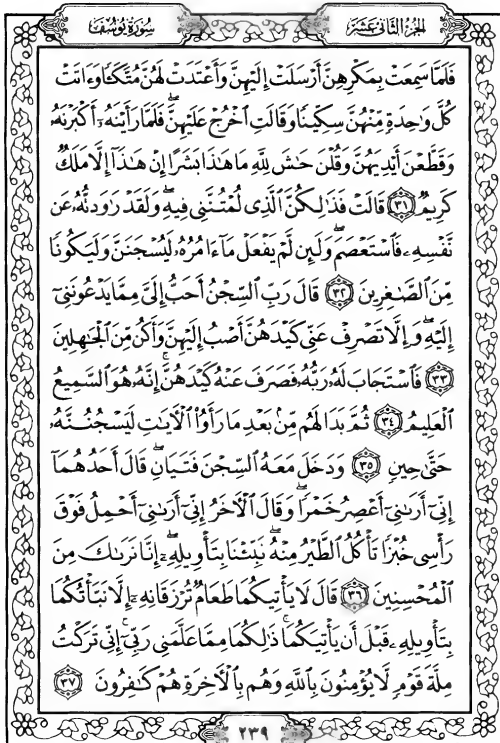 الجزء الثاني عشر
سورة يوسف
فَلَمَّا سَمِعَتْ بِمَكْرِهِنَّ أَرْسَلَتْ إِلَيْهِنَّ وَأَعْتَدَتْ لَهُنَّ مُتَّكَـًٔا وَءَاتَتْ
كُلَّ وَٰحِدَةٍ مِّنْهُنَّ سِكِّينًا وَقَالَتِ ٱخْرُجْ عَلَيْهِنَّ ۖ فَلَمَّا رَأَيْنَهُۥٓ أَكْبَرْنَهُۥ
وَقَطَّعْنَ أَيْدِيَهُنَّ وَقُلْنَ حَٰشَ لِلَّهِ مَا هَٰذَا بَشَرًا إِنْ هَٰذَآ إِلَّا مَلَكٌ
كَرِيمٌ ٣١ قَالَتْ فَذَٰلِكُنَّ ٱلَّذِى لُمْتُنَّنِى فِيهِ ۖ وَلَقَدْ رَٰوَدتُّهُۥ عَن
نَّفْسِهِۦ فَٱسْتَعْصَمَ ۖ وَلَئِن لَّمْ يَفْعَلْ مَآ ءَامُرُهُۥ لَيُسْجَنَنَّ وَلَيَكُونًا
مِّنَ ٱلصَّٰغِرِينَ ٣٢ قَالَ رَبِّ ٱلسِّجْنُ أَحَبُّ إِلَىَّ مِمَّا يَدْعُونَنِىٓ
إِلَيْهِ ۖ وَإِلَّا تَصْرِفْ عَنِّى كَيْدَهُنَّ أَصْبُ إِلَيْهِنَّ وَأَكُن مِّنَ ٱلْجَٰهِلِينَ
٣٣ فَٱسْتَجَابَ لَهُۥ رَبُّهُۥ فَصَرَفَ عَنْهُ كَيْدَهُنَّ ۚ إِنَّهُۥ هُوَ ٱلسَّمِيعُ
ٱلْعَلِيمُ ٣٤ ثُمَّ بَدَا لَهُم مِّنۢ بَعْدِ مَا رَأَوُا۟ ٱلْـَٔايَٰتِ لَيَسْجُنُنَّهُۥ
حَتَّىٰ حِينٍ ٣٥ وَدَخَلَ مَعَهُ ٱلسِّجْنَ فَتَيَانِ ۖ قَالَ أَحَدُهُمَآ
إِنِّىٓ أَرَىٰنِىٓ أَعْصِرُ خَمْرًا ۖ وَقَالَ ٱلْـَٔاخَرُ إِنِّىٓ أَرَىٰنِىٓ أَحْمِلُ فَوْقَ
رَأْسِى خُبْزًا تَأْكُلُ ٱلطَّيْرُ مِنْهُ ۖ نَبِّئْنَا بِتَأْوِيلِهِۦٓ ۖ إِنَّا نَرَىٰكَ مِنَ
ٱلْمُحْسِنِينَ ٣٦ قَالَ لَا يَأْتِيكُمَا طَعَامٌ تُرْزَقَانِهِۦٓ إِلَّا نَبَّأْتُكُمَا
بِتَأْوِيلِهِۦ قَبْلَ أَن يَأْتِيَكُمَا ۚ ذَٰلِكُمَا مِمَّا عَلَّمَنِى رَبِّىٓ ۚ إِنِّى تَرَكْتُ
مِلَّةَ قَوْمٍ لَّا يُؤْمِنُونَ بِٱللَّهِ وَهُم بِٱلْـَٔاخِرَةِ هُمْ كَٰفِرُونَ ٣٧
٢٣٩